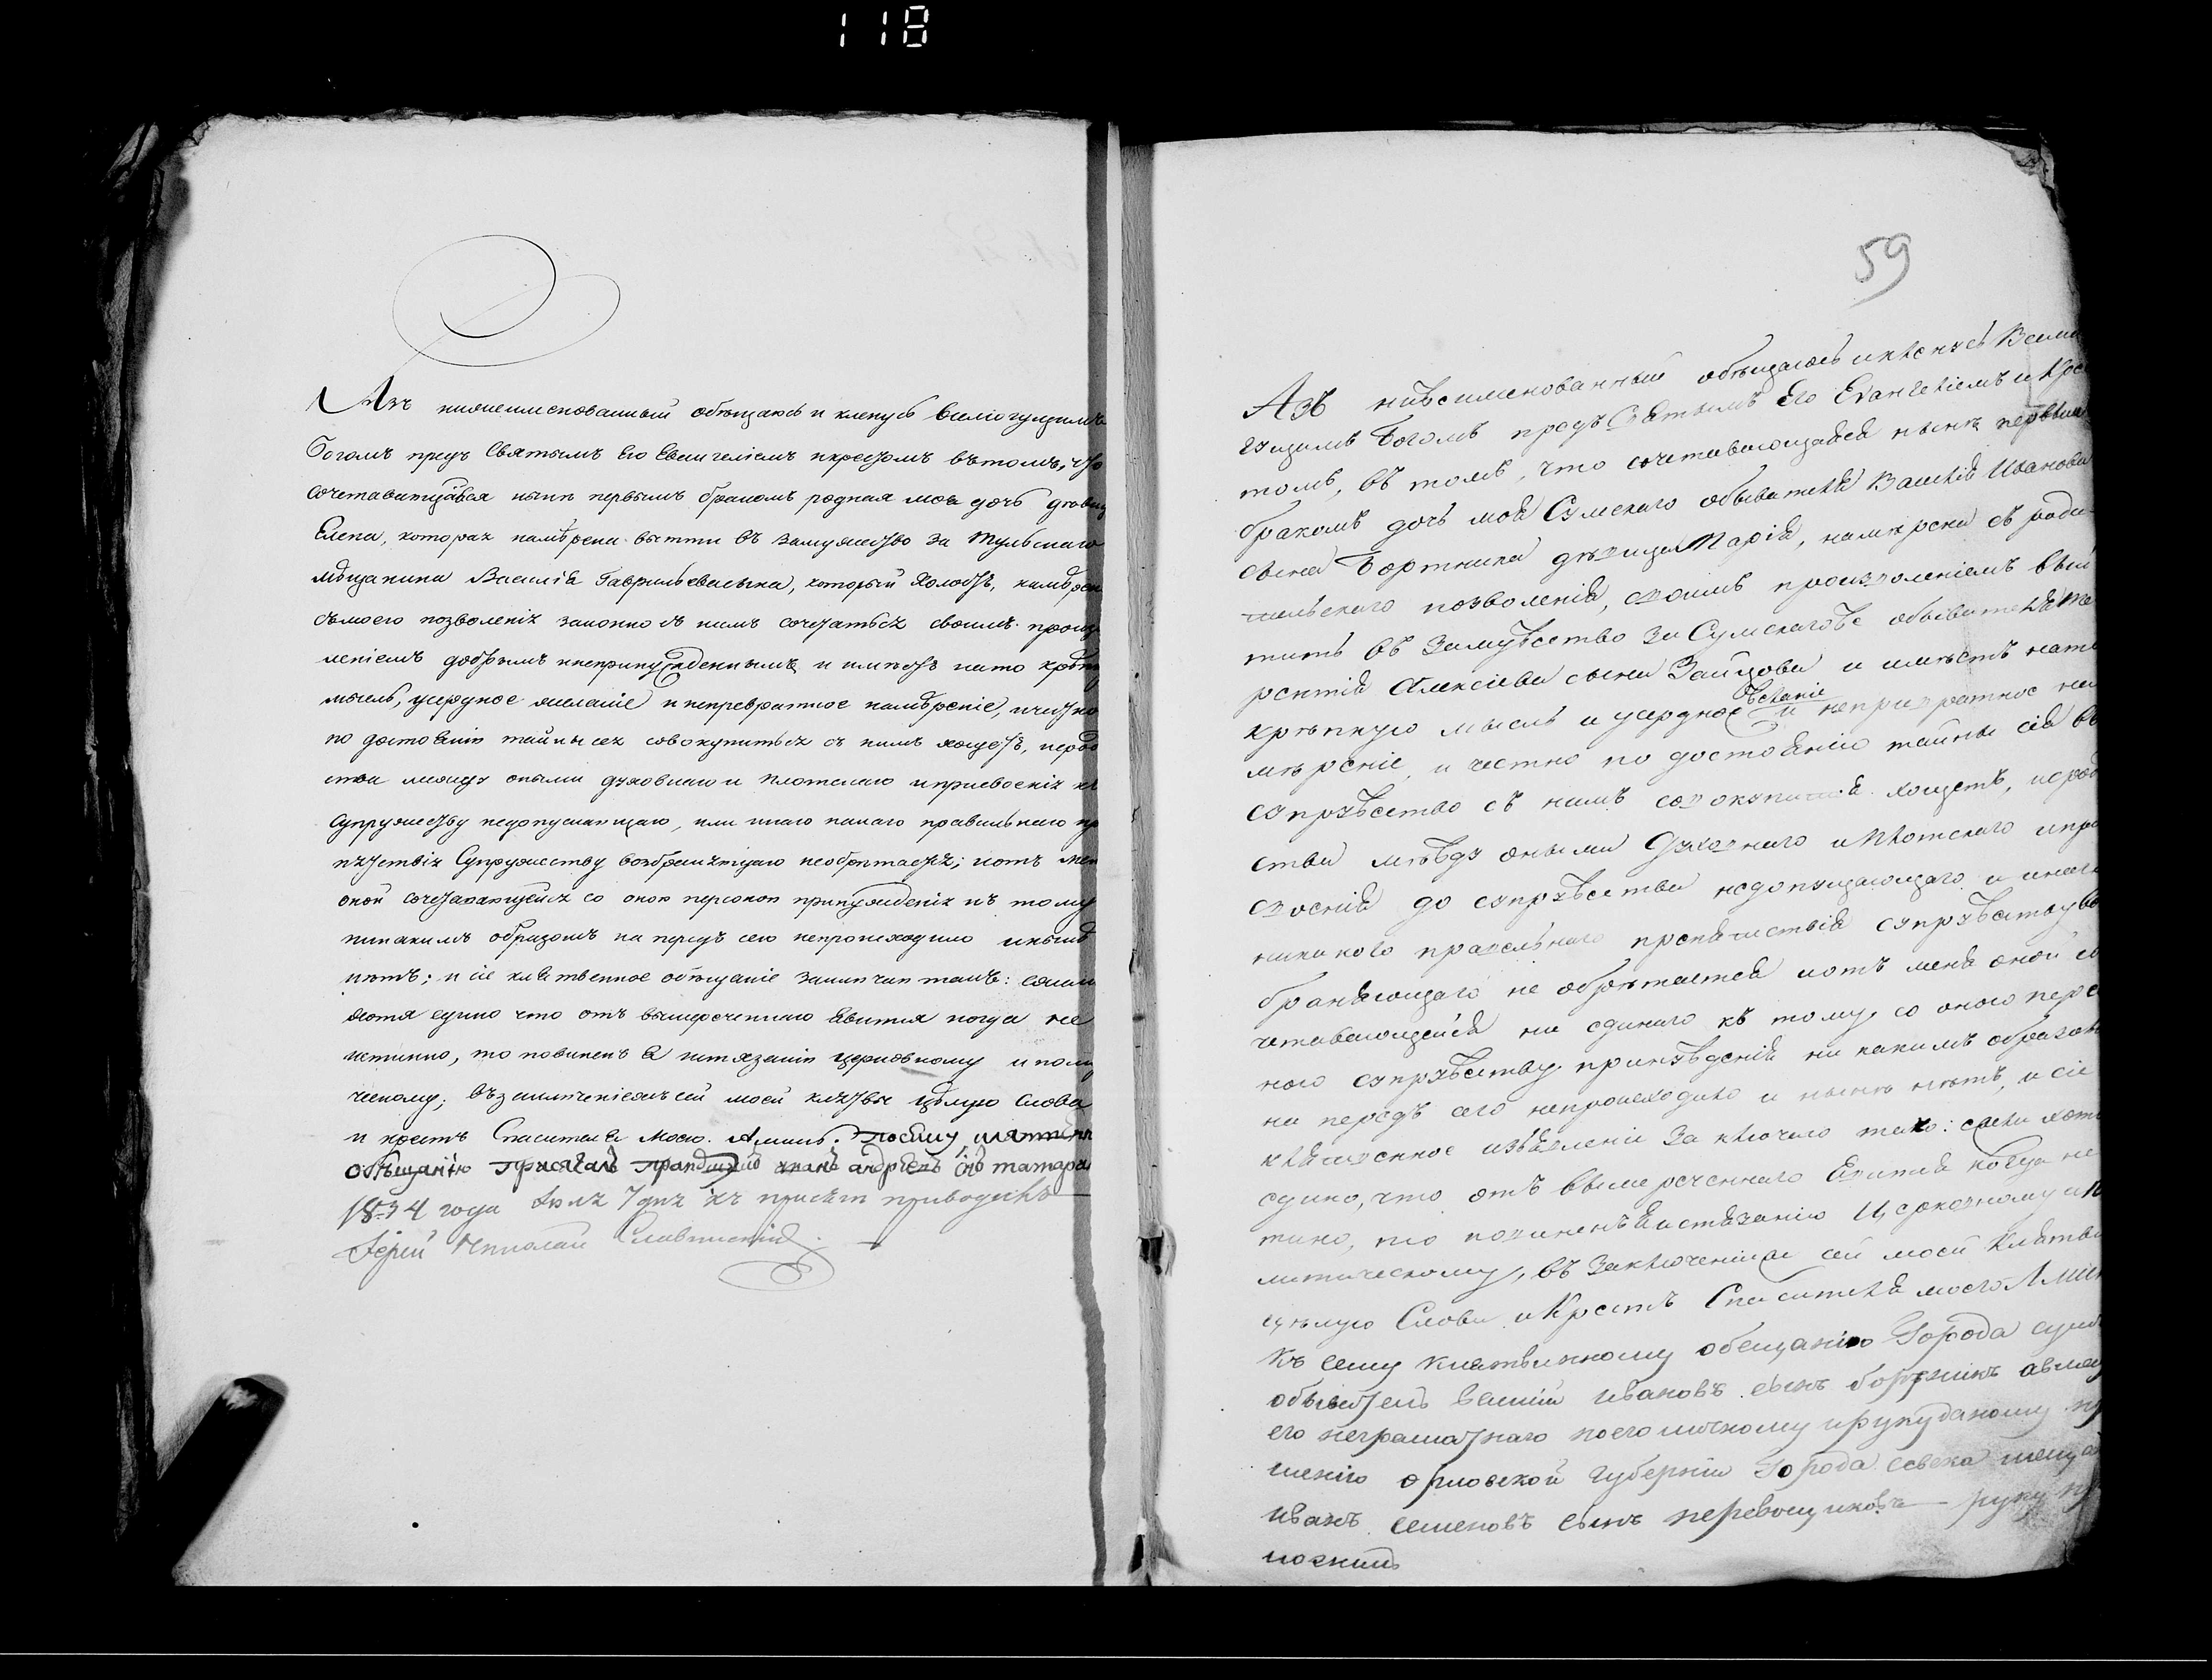 118
Азъ нижеименованный обѣщаюсь и кленусь Всемогущимъ
Богомъ предъ Святымъ Его Евангеліемъ и крестомъ вътомъ, что
сочетавающаяся нынѣ первымъ бракомъ родная моя дочь дѣвица
Елена, которая намѣрена вытти въ замужество за Тульскаго
мѣщанина Василія Гаврильева сына, который холостъ, намѣрена
съ моего позволенія законно съ нимъ сочетаться своимъ произ
леніемъ добрымъ и непринужденнымъ и имѣетъ на то крѣпку
мысль, усердное желаніе и непревратное намѣреніе, и честно
по достоянію тайны сея совокупиться съ нимъ хощетъ, иродо
ства между оными духовнаго и плотскаго и присвоенія къ
супружеству недопускающаго, или инаго какаго правильнаго пр
пятствія Супружеству возбраняющаго необрѣтается; и отъ мен
оной сочетавающейся со оною персоною принужденія къ тому
никакимъ образомъ на передъ сего непроисходило и нынѣ
нѣтъ; и сіе клятвенное обѣщаніе заключаю тако: ежели
хотя едино что отъ вышереченнаго явится когда не
истинно, то повиненъ я истязанію церковному и поли
ческому; въ заключеніе жъ сей моей клятвы цѣлую Слова
и крестъ Спасителя Моего. Аминь. По сему клятвен
обѣщанію присягалъ андрѣевъ снъ татари
1834 года Іюля 7 дня къ присягѣ приводилъ
Іерей Николай Славинскій.
59
Азъ нижеименованный обѣщаюсь и кленусь Всемо
гущимъ Богомъ предъ Святымъ Его Евангеліемъ и Крес
томъ, въ томъ, что сочетавающаяся нынѣ первымъ
бракомъ дочь моя Сумскаго обывателя Василія Иванова
сына Бортника дѣвица Марія, намѣрена съ роди-
тельскаго позволенія, своимъ произволеніемъ вый
тить въ замужество за Сумскагожъ обывателя Те
рентія Алексіева сына Зайцова и имѣетъ нато
желаніе
крѣпкую мысль и усердное и непревратное на
мѣреніе, и честно по достоянію тайны сія въ
супружество съ нимъ совокупится хощетъ, иродс
ства между оными Духовнаго и Плотскаго и при
своенія до супружества недопущающаго и инаго
никакого правельнаго препятствія супружеству во
браняющаго не обрѣтается и отъ меня оной со
четавающейся ни единаго къ тому, со оною персо
ною супружеству принужденія ни какимъ образомъ
на передъ сего непроисходило и нынѣ нѣтъ, и сіе
клятвенное изъявленіе заключаю тако: ежели хотя
едино, что отъ выше реченнаго Явится когда не
тино, то повиненъ я истязанію Церковному и По
литическому, въ заключеніиже сей моей Клятвы
цѣлую Слова и Крестъ Спасителя моего Аминь
Къ сему клятвенному обещанію Города сум
обыватель василій ивановъ сынъ бортникъ авмес
его неграматнаго поего личному ирукуданому пр
шенію орловской губерніи Города севска мещан
иванъ семеновъ сынъ перевощиковъ руку пр
ложилъ